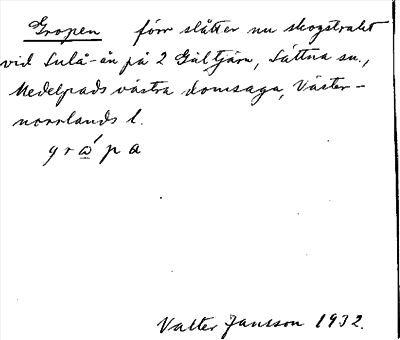 Gropen förr slåtter nu skogstrakt
vid Sulå-ån på 2 Gältjärn, Sättna sn.,
Medelpads västra domsaga, Väster-
norrlands l.
gròpa
Valter Jansson 1932.